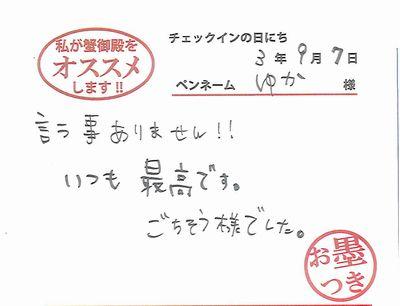 私が蟹御殿を
オススメ
します!!
チェックインの日にち
3年9月7日
ペンネーム ゆか 様
言う事ありません!!
いつも 最高です。
ごちそう様でした。
お墨
つき